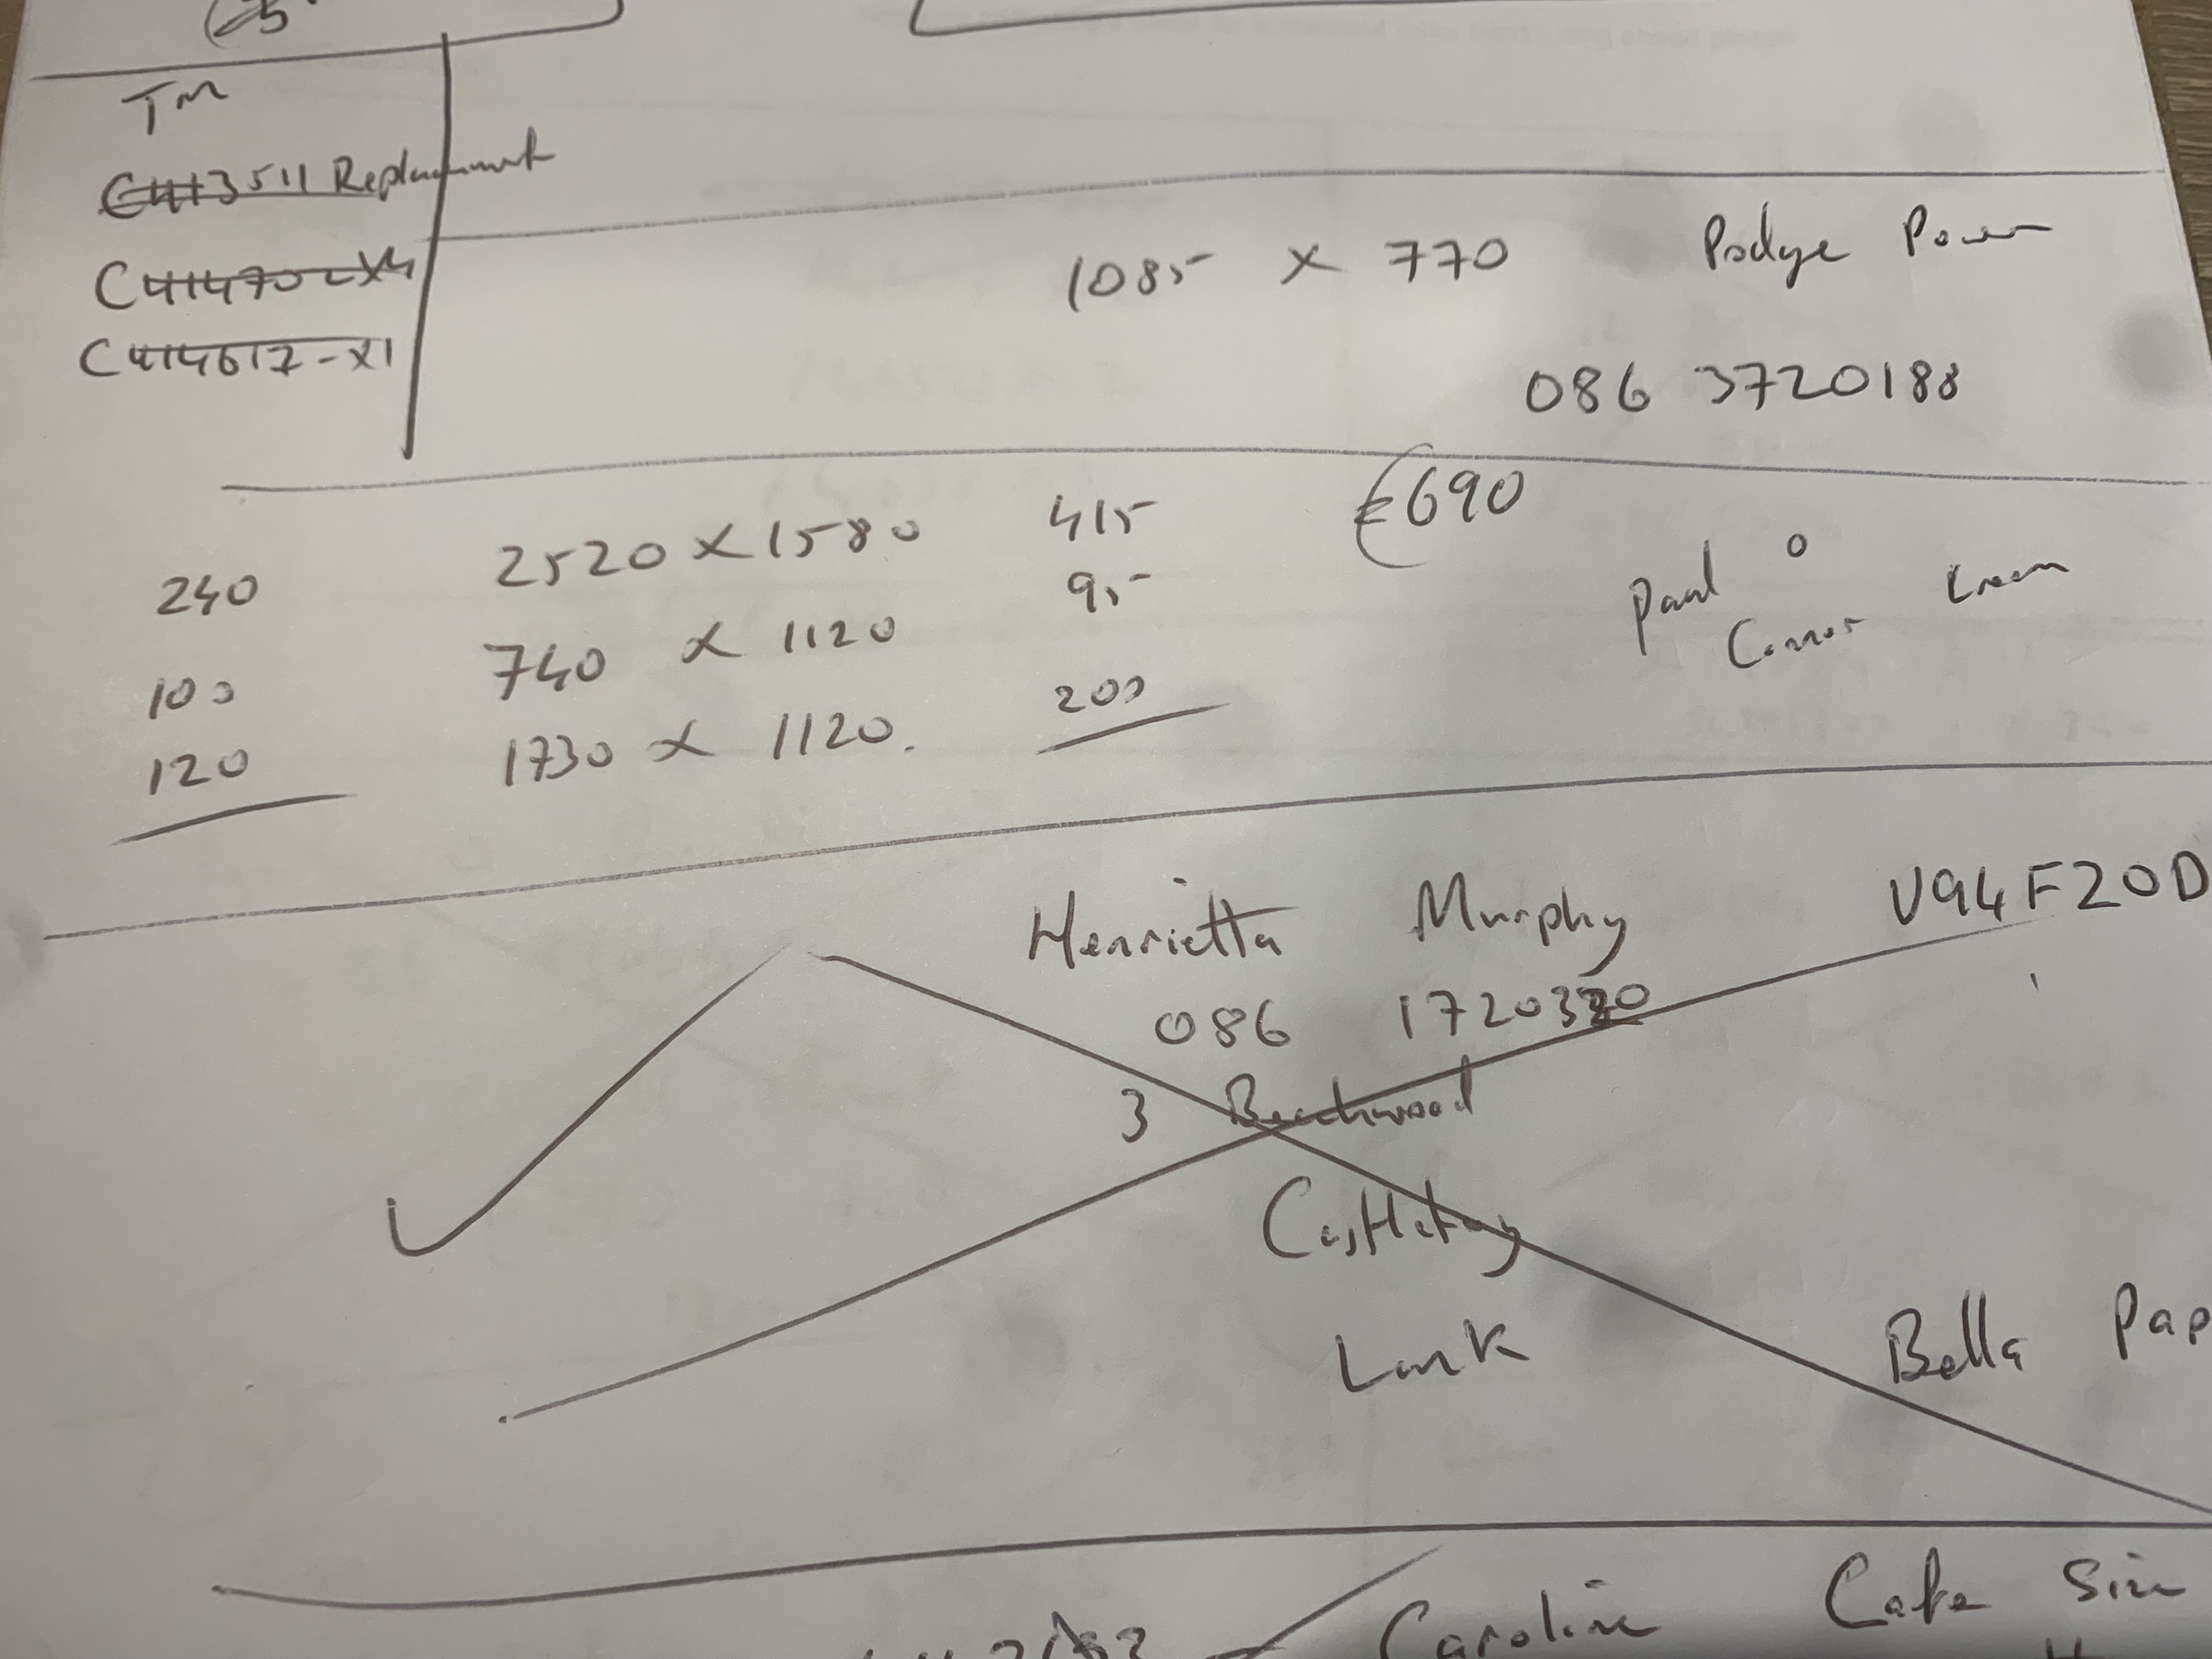 25
TM
C413511 Replacement
C414702 X4
C414617-X1
1085 x 770 Podge Power
086 3720188
240 2520 x 1580 415 €690
100 740 x 1120 95 Paul O
Connor Cream
120 1730 x 1120. 200
Henrietta Murphy V94F20D
086 1720320
3 Beechwood
Castletroy
Lmk Bella Pap
Caroline Cake Size